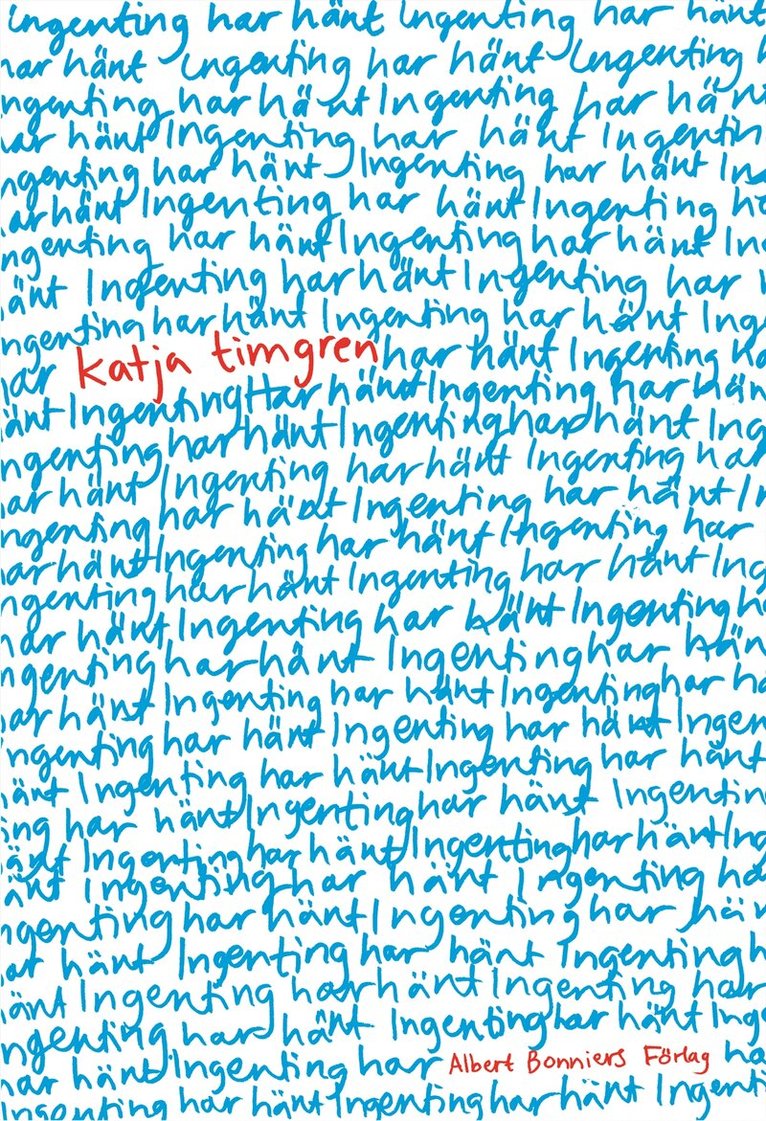 Ingenting har hänt Ingenting har hänt
har hänt Ingenting har hänt Ingenting
ngenting har hänt Ingenting har hän
har hänt Ingenting har hänt Ingentin
ngenting har hänt Ingenting har hänt In
ar hänt Ingenting har hänt Ingenting h
ngenting har hänt Ingenting har hänt In
änt Ingenting har hänt Ingenting har
ngenting har hänt Ingenting har hänt Ing
har katja timgren har hänt Ingenting ha
änt Ingenting Har hänt Ingenting har hän
ngenting har hänt Ingenting har hänt Ing
ar hänt Ingenting har hänt Ingenting har
ngenting har hänt Ingenting har hänt I
ar hänt Ingenting har hänt Ingenting har
ngenting har hänt Ingenting har hänt Ing
har hänt Ingenting har hänt Ingenting h
ngenting har hänt Ingenting har hän
ar hänt Ingenting har hänt Ingenting har h
ngenting har hänt Ingenting har hänt Ingen
änt Ingenting har hänt Ingenting har hänt
ing har hänt Ingenting har hänt Ingentin
änt Ingenting har hänt Ingenting har hänt Ing
änt Ingenting har hänt Ingenting ha
ngenting har hänt Ingenting har hän
ar hänt Ingenting har hänt Ingenting h
änt Ingenting har hänt Ingenting har
ngenting har hänt Ingenting har hänt Inge
har hänt Ingenting har Albert Bonniers Förlag ha
Ingenting har hänt Ingenting har hänt Ingenti